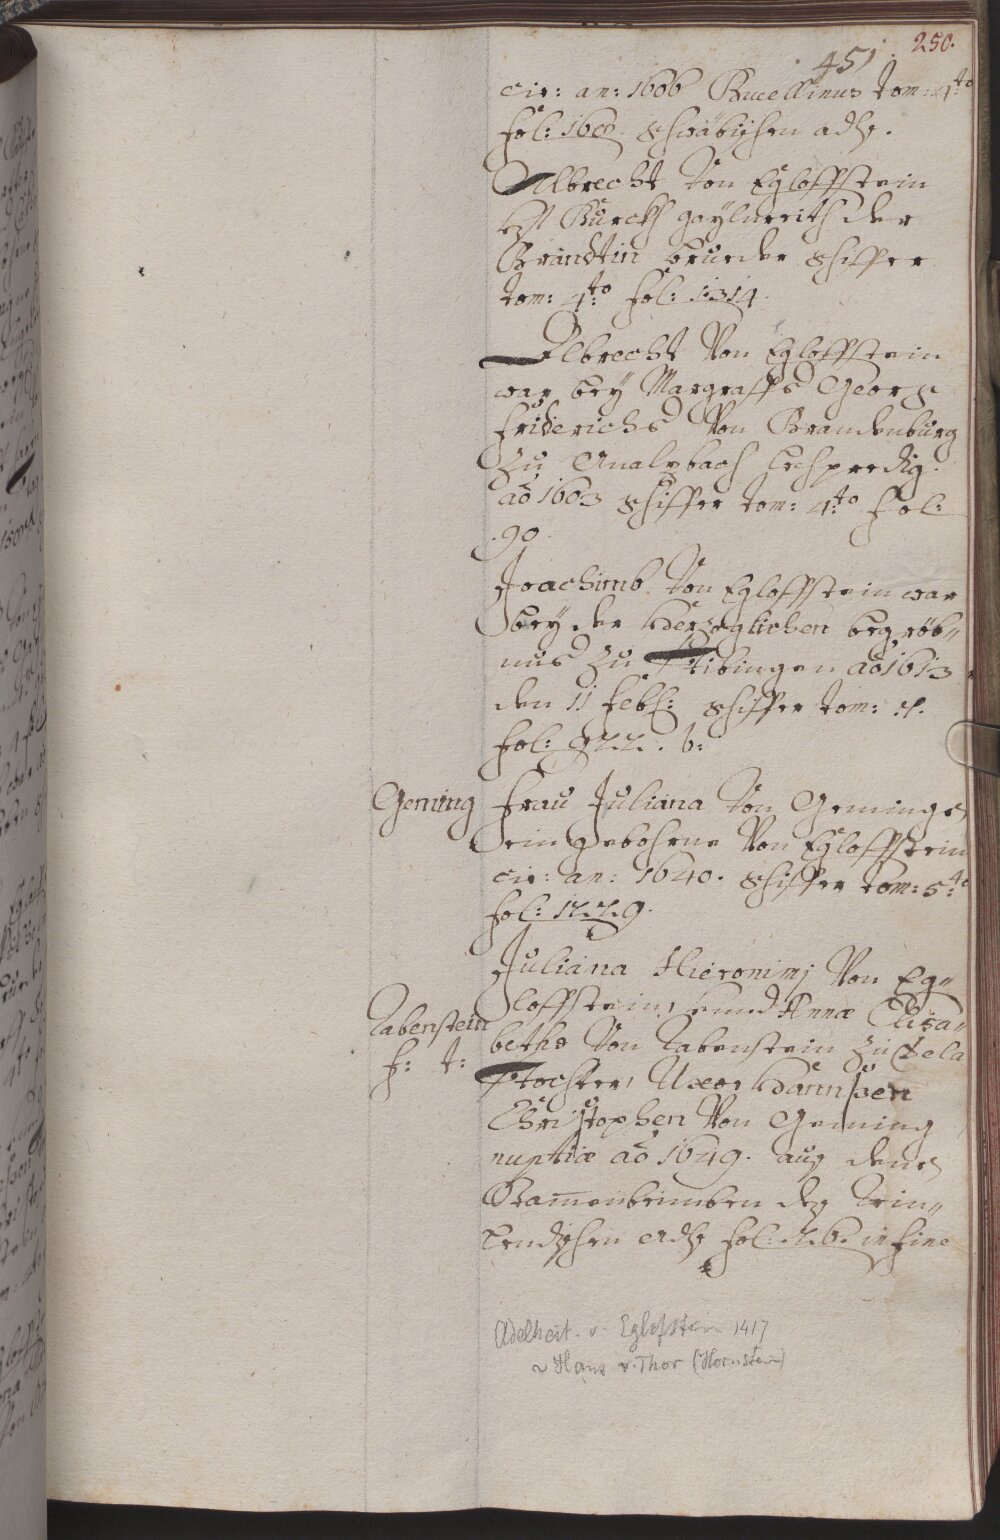 250.
451.
cir: an: 1606 Bucellinus tom: 4to
fol: 160. schwäbischen adlß.
Albrecht Von Egloffstein
Zu Burckh gaylnreith der
Brandtin brueder schiffer
tom: 4to fol: 1314.
Albrecht Von Egloffstein
war bey Margraffs Georg
Friderichs Von Brandenburg
zu Onalzbach leichpredig
ao 1603 schiffer tom: 4to fol:
90.
Joachimb Von Egloffstein war
bey der Herzoglichen begröb„
nus zu Tibingen ao 1613
den 11 feb: schiffer tom: 4.
fol: 922. b:
Geming Frau Juliana Von Geminge
ein gebohrne Von Egloffstein
cir: an: 1640. schiffer tom: 5to
fol: 1229.
Juliana Hieronimj Von Eg„
loffstein, unnd Annæ Elisa„
Rabenstein
beths Von Rabenstein zu
f: t:
Tochter, Uxor Hannßen
Christophen Von Geming
nuptiæ ao 1649. auß denen
Stamenbeimben deß Rein„
lendischen Adlß fol: 26. in fine
Adelheit v. Eglofstein 1417
~ Hans v. Thor (Hornstein)